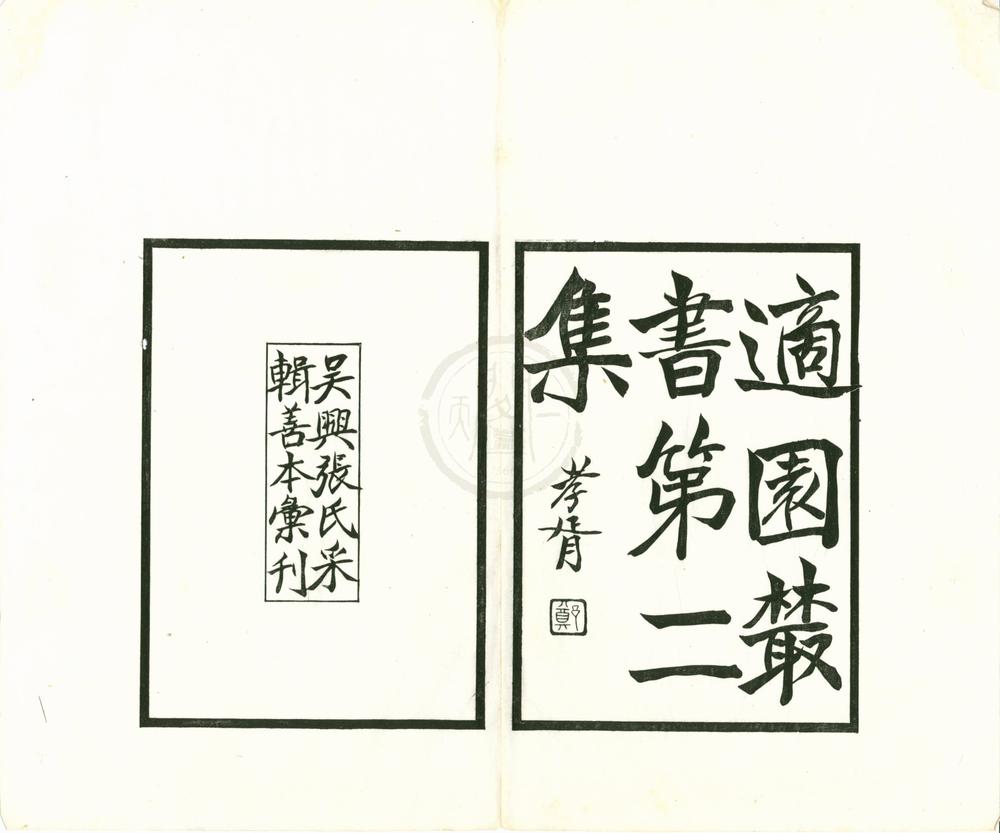 適園叢
書第二
集
孝胥
鄭
吳興張氏采
輯善本彙刊